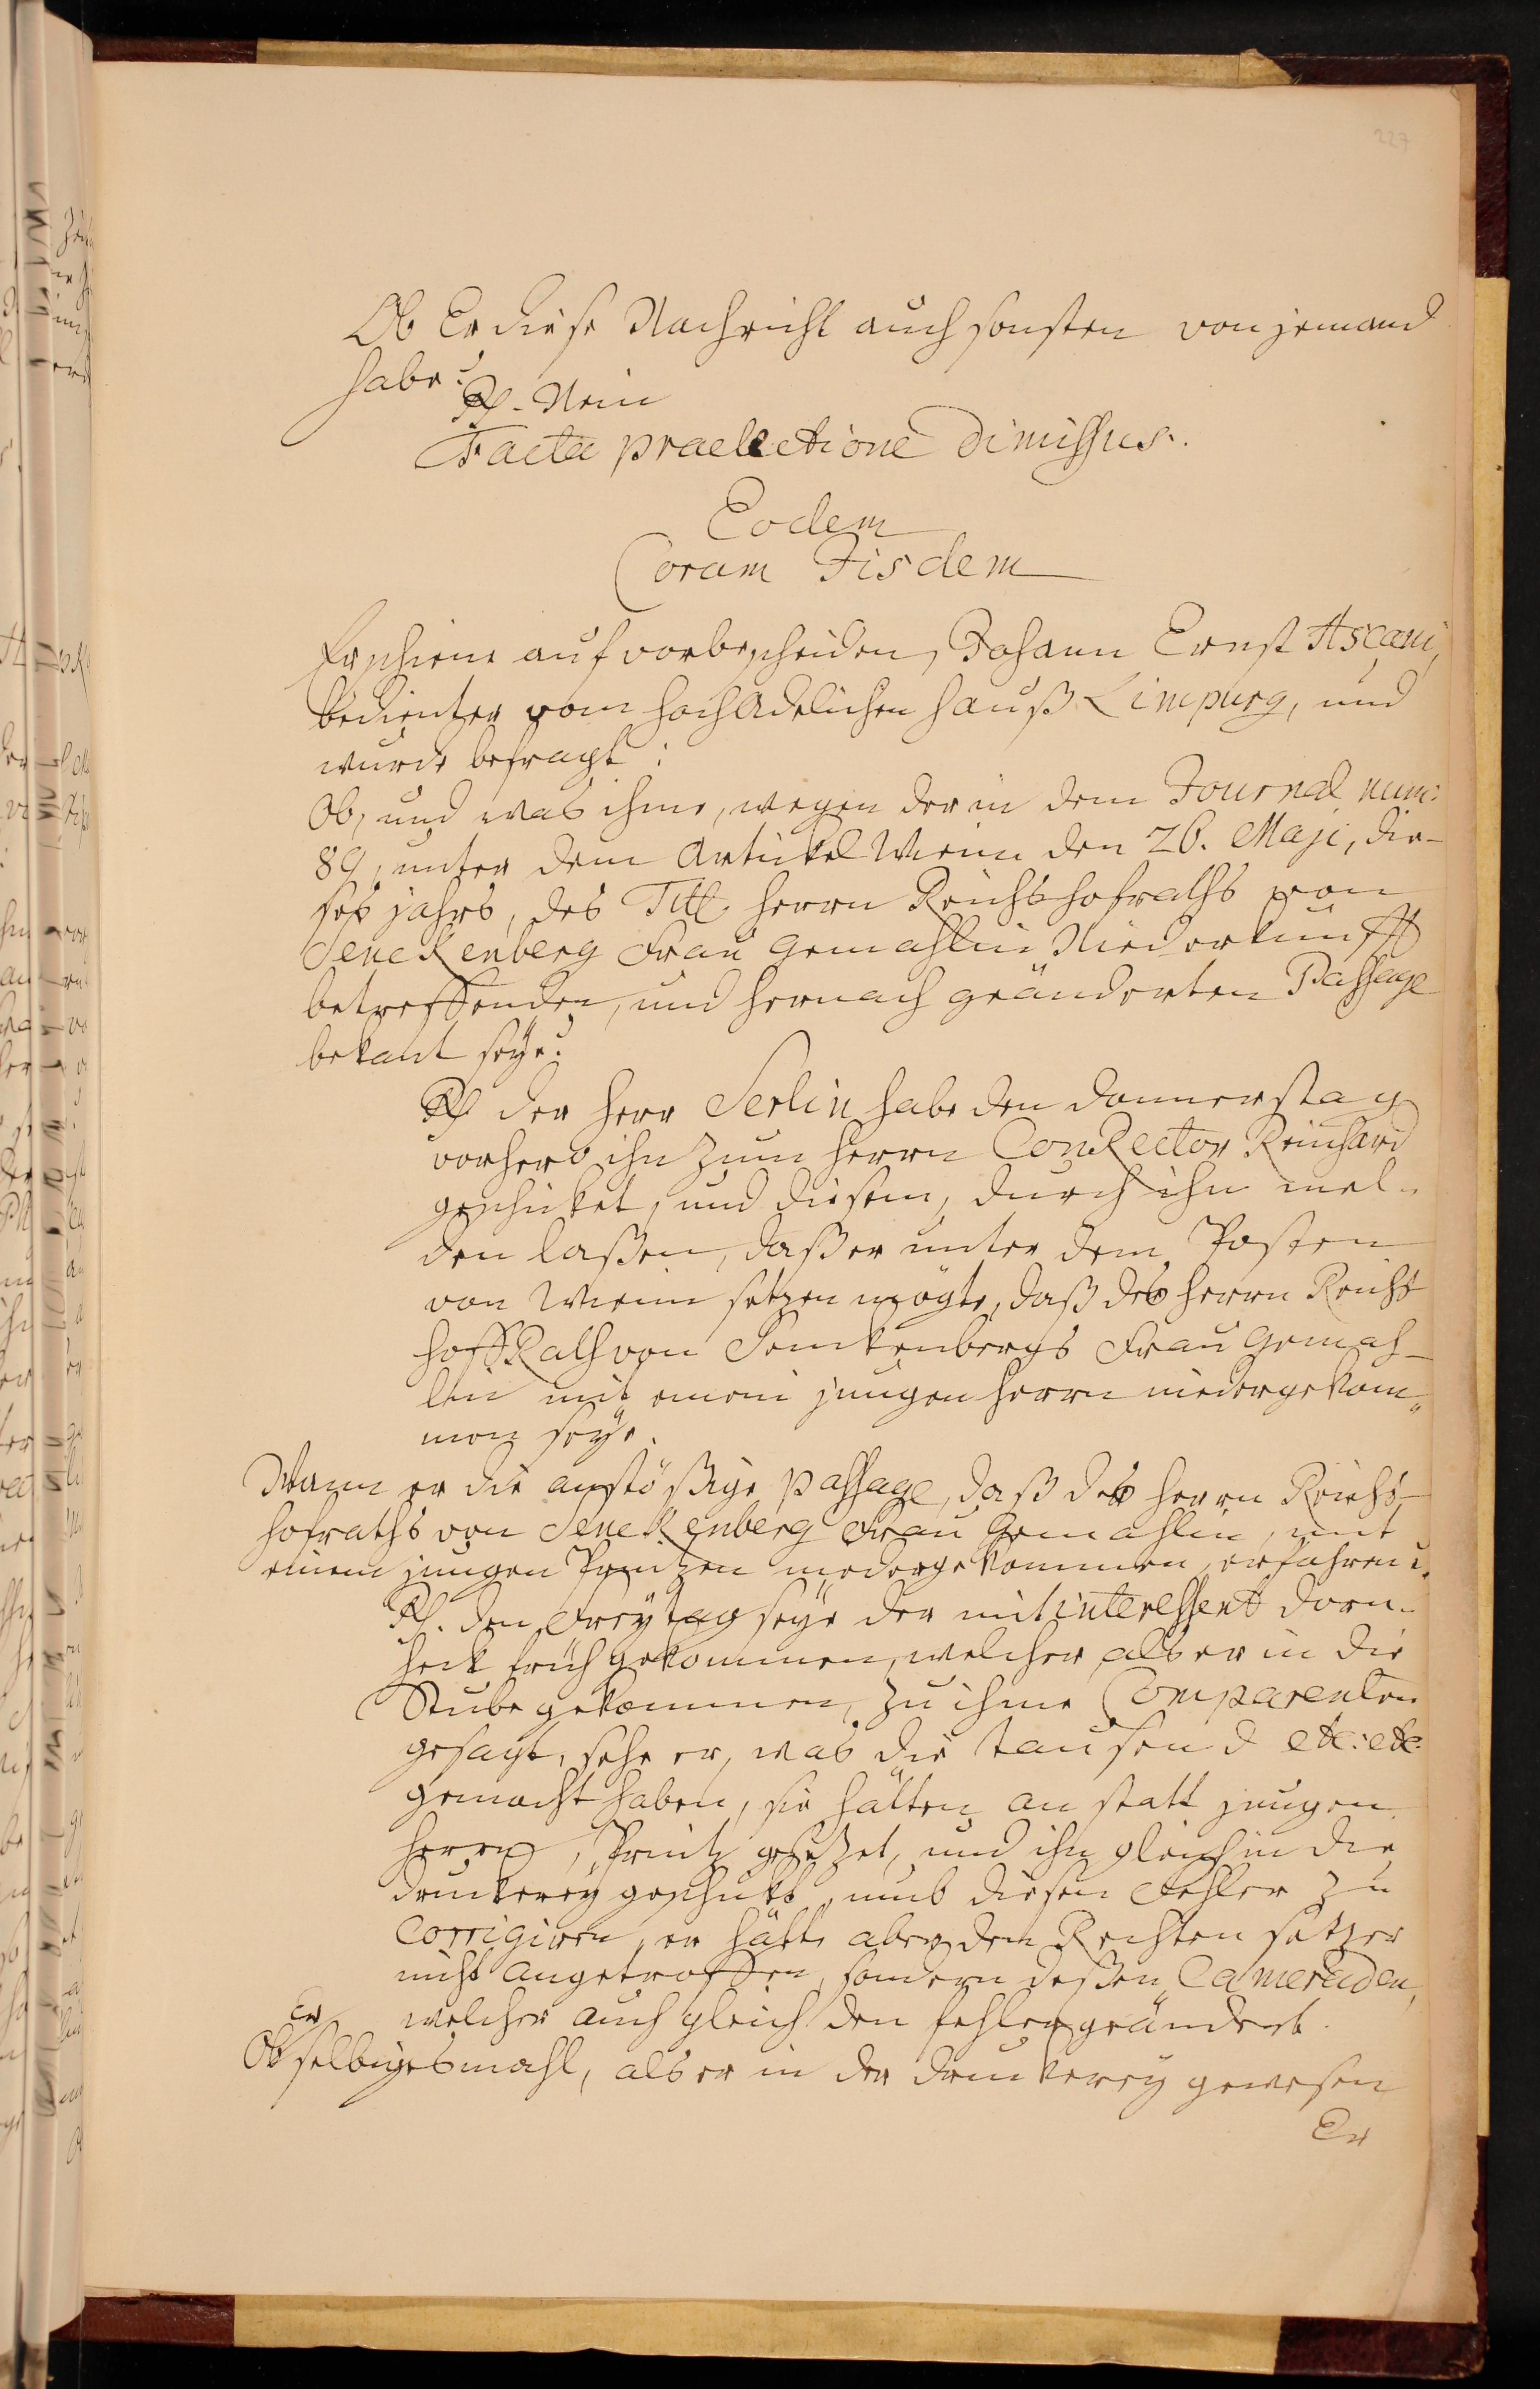 227
Ob Er diese Nachricht auch sonsten von jemand
habe?
Rx. Nein
Facta praelectione dimissus.
Eodem
Coram Iisdem
Erschiene auf vorbescheiden, Johann Ernst Ascani,
bedienter vom hochAdelichen Hauß Limpurg, und
wurde befragt:
Ob, und was ihme, wegen der in dem Journal num:
89, unter dem Artickel Wienn den 26. Maji, die-
ses jahrs, des Titl. Herrn Reichshofraths von
Senckenberg Frau Gemahlin Niederkunfft
betreffenden, und hernach geänderten Passage
bekant seye?
Rx der Herr Serlin habe den donnerstag
vorhero ihn zum Herrn ConRector Reinhard
geschicket, und diesem, durch ihn mel-
den laßen, daß er unter dem Posten
von Wienn setzen mögte, daß des Herrn Reichs
hoffRath von Senckenbergs Frau Gemah-
lin mit einem jungen Herrn niedergekom-
men seye.
Wann er die anstößige passage, daß des Herrn Reichs-
hofraths von Senckenberg Frau Gemahlin, mit
einem jungen Printzen niedergekommen, erfahren?
Rx. den Freytag seye der mitinteressent Dorn-
heck früh gekommen, welcher, als er in die
Stube gekommen, zu ihme Comparenten
gesagt, sehe er, was die tausend etc: etc:
gemacht haben, sie hätten an statt jungen
Herrn, Printz gesetzet, und ihn gleich in die
druckerey geschickt, umb diesen Fehler zu
Corrigiren, er hätte aber den Rechten setzer
nicht angetroffen, sondern deßen Cameraden,
welcher auch gleich den fehler geändert.
Er
Ob selbigesmahl, als er in der druckerey gewesen
Er